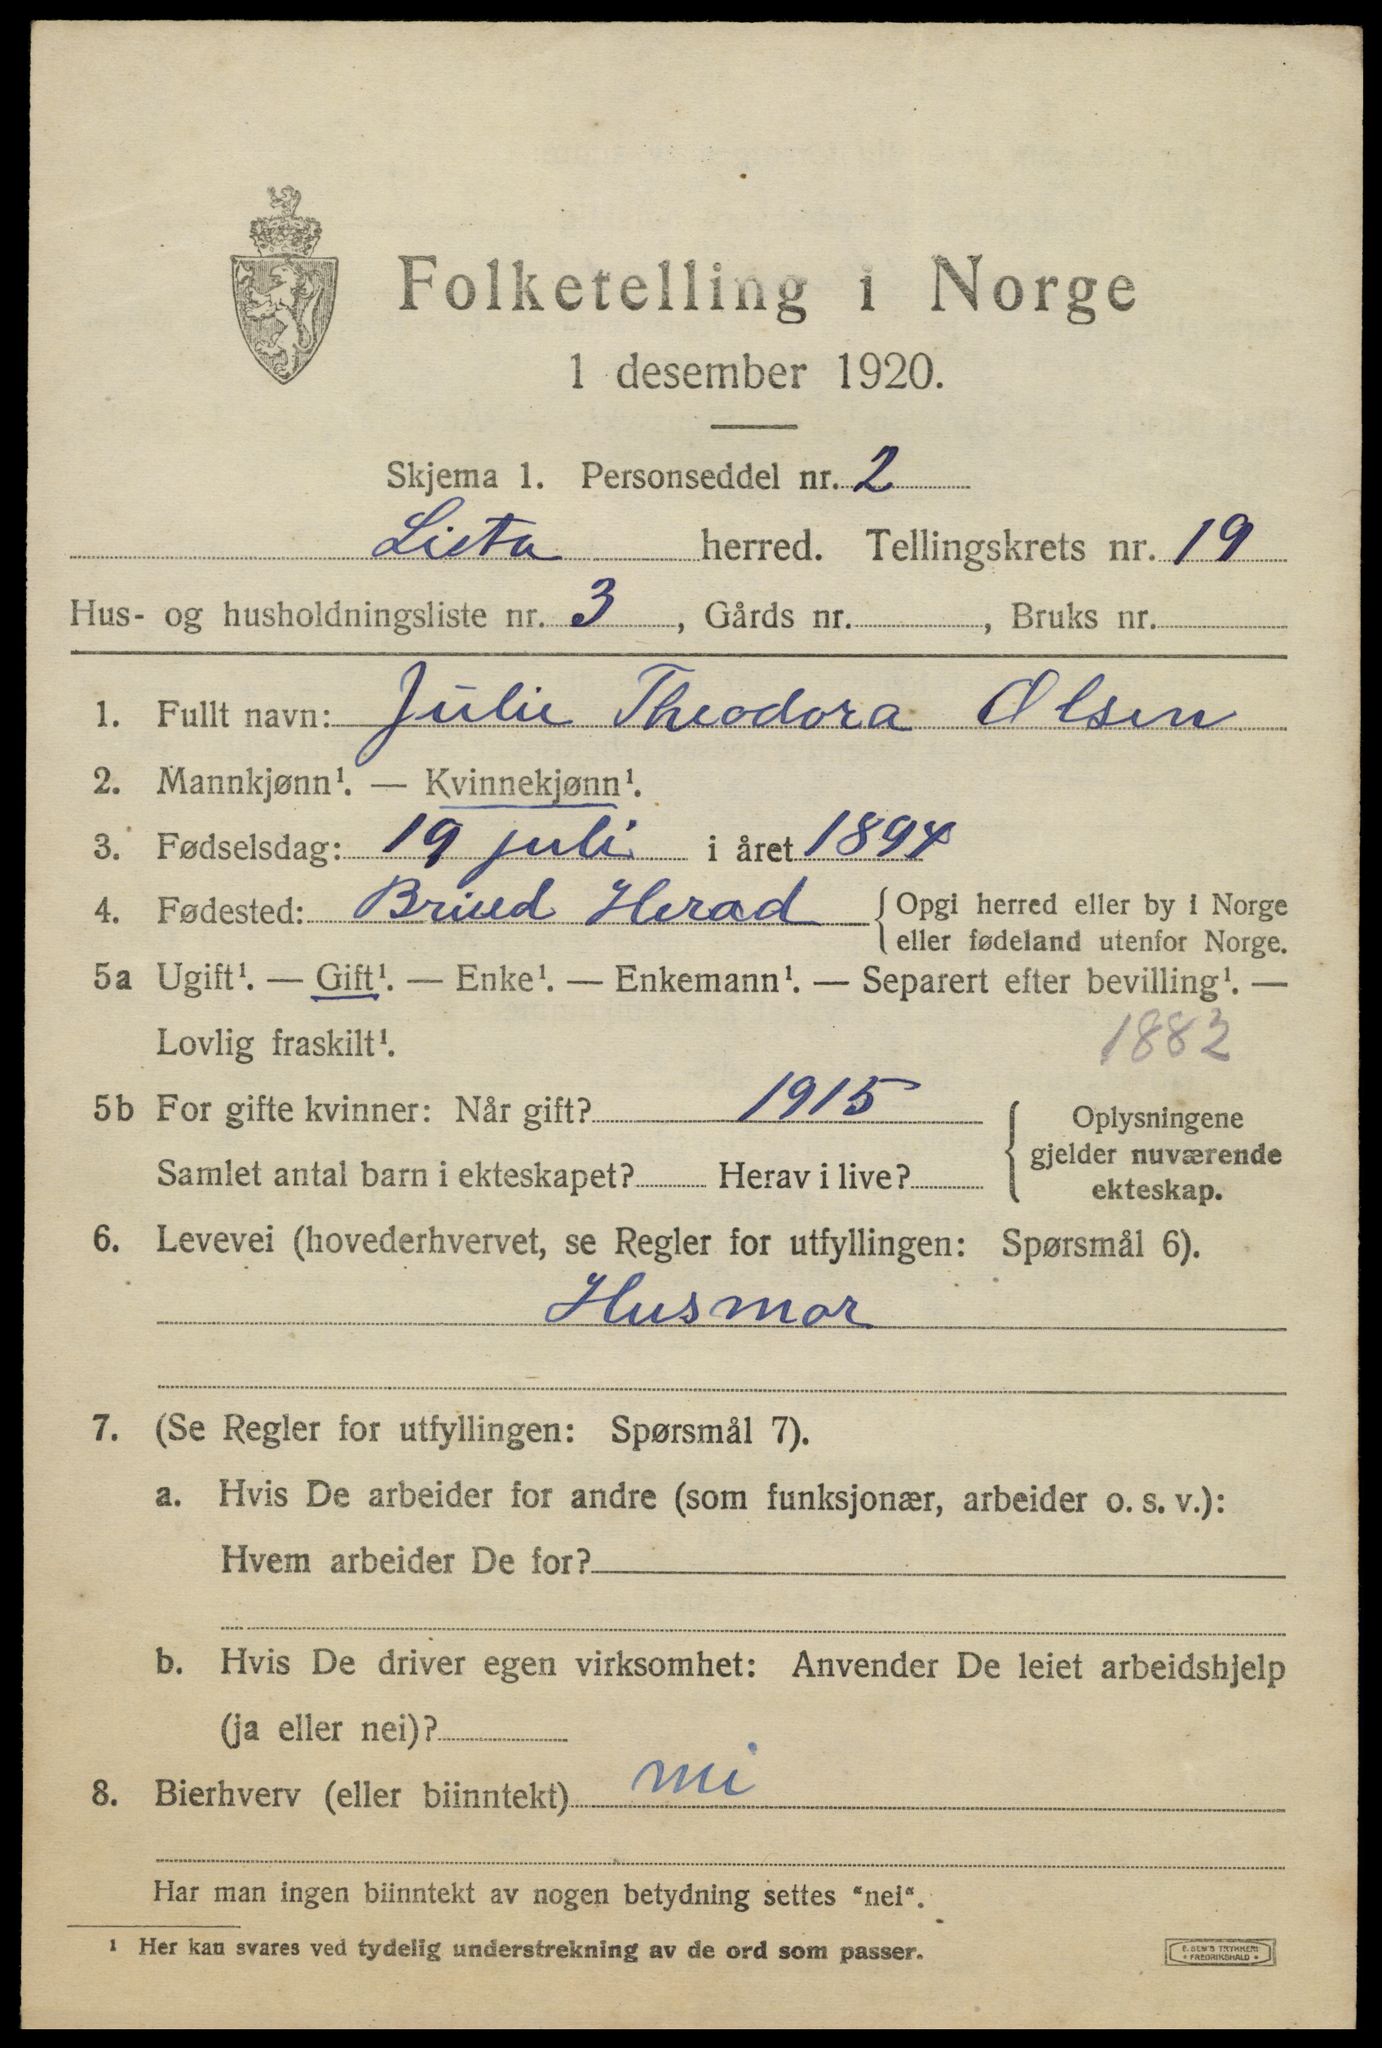 Folketelling i Norge
1 desember 1920.
Skjema 1. Personseddel nr. 2
Lista herred. Tellingskrets nr. 19
Hus- og husholdningsliste nr. 3, Gårds nr. , Bruks nr.
1. Fullt navn: Julie Theodora Olsen
2. Mannkjønn¹. — Kvinnekjønn¹.
3. Fødselsdag: 19 juli i året 1894
4. Fødested: Herad { Opgi herred eller by i Norge
eller fødeland utenfor Norge.
5a Ugift¹. — Gift¹. — Enke¹. — Enkemann¹. — Separert efter bevilling¹. —
Lovlig fraskilt¹. 1883
5b For gifte kvinner: Når gift? 1915 { Oplysningene
gjelder nuværende
ekteskap.
Samlet antal barn i ekteskapet? Herav i live?
6. Levevei (hovederhvervet, se Regler for utfyllingen: Spørsmål 6).
Husmor
7. (Se Regler for utfyllingen: Spørsmål 7).
a. Hvis De arbeider for andre (som funksjonær, arbeider o. s. v.):
Hvem arbeider De for?
b. Hvis De driver egen virksomhet: Anvender De leiet arbeidshjelp
(ja eller nei)?
8. Bierhverv (eller biinntekt) nei
Har man ingen biinntekt av nogen betydning settes "nei".
¹ Her kan svares ved tydelig understrekning av de ord som passer.
E. SEM'S TRYKKERI
FREDRIKSHALD